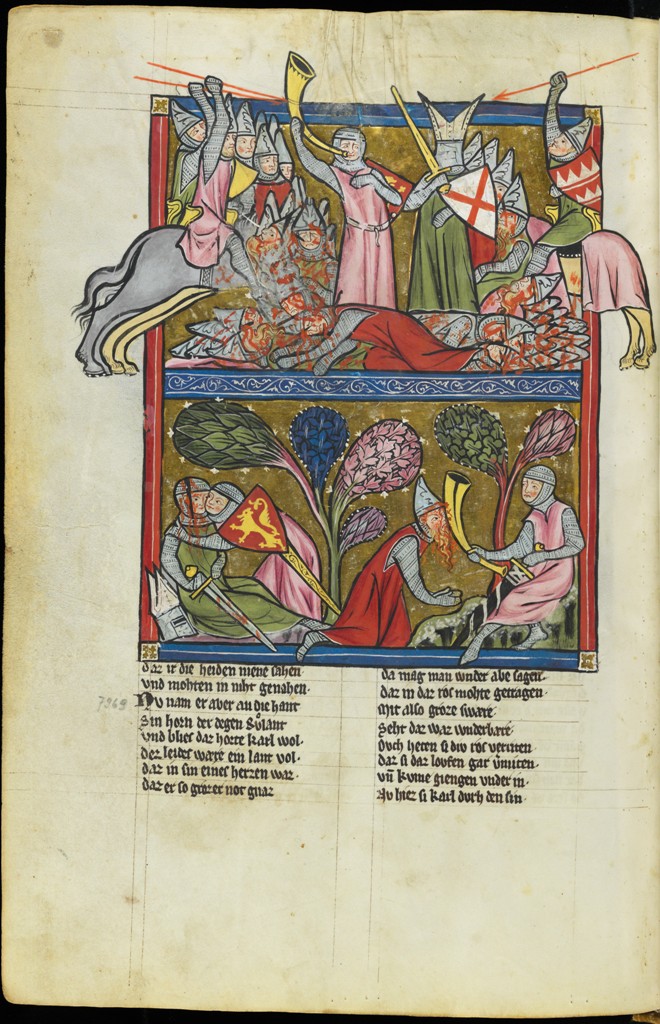 daz ir die heiden niene sahen·
vnd mohten in niht genahen·
7969
Nv nam er aber an die hant
Sin horn der degen Rv̊lant
vnd blies daz horte karl wol·
der leides ware ein lant vol·
daz in sin eines herzen waz·
daz er so grozer not gnaz
da mag man wnder abe sagen·
daz in daz ros mohte getragen·
Mit also groze sware·
Seht daz waz wnderbare·
Ovch heten si div ros verriten·
daz si daz lovfen gar vermiten·
vn̄ kvme giengen vnder in·
Nv hiez si karl dvrh den sin·